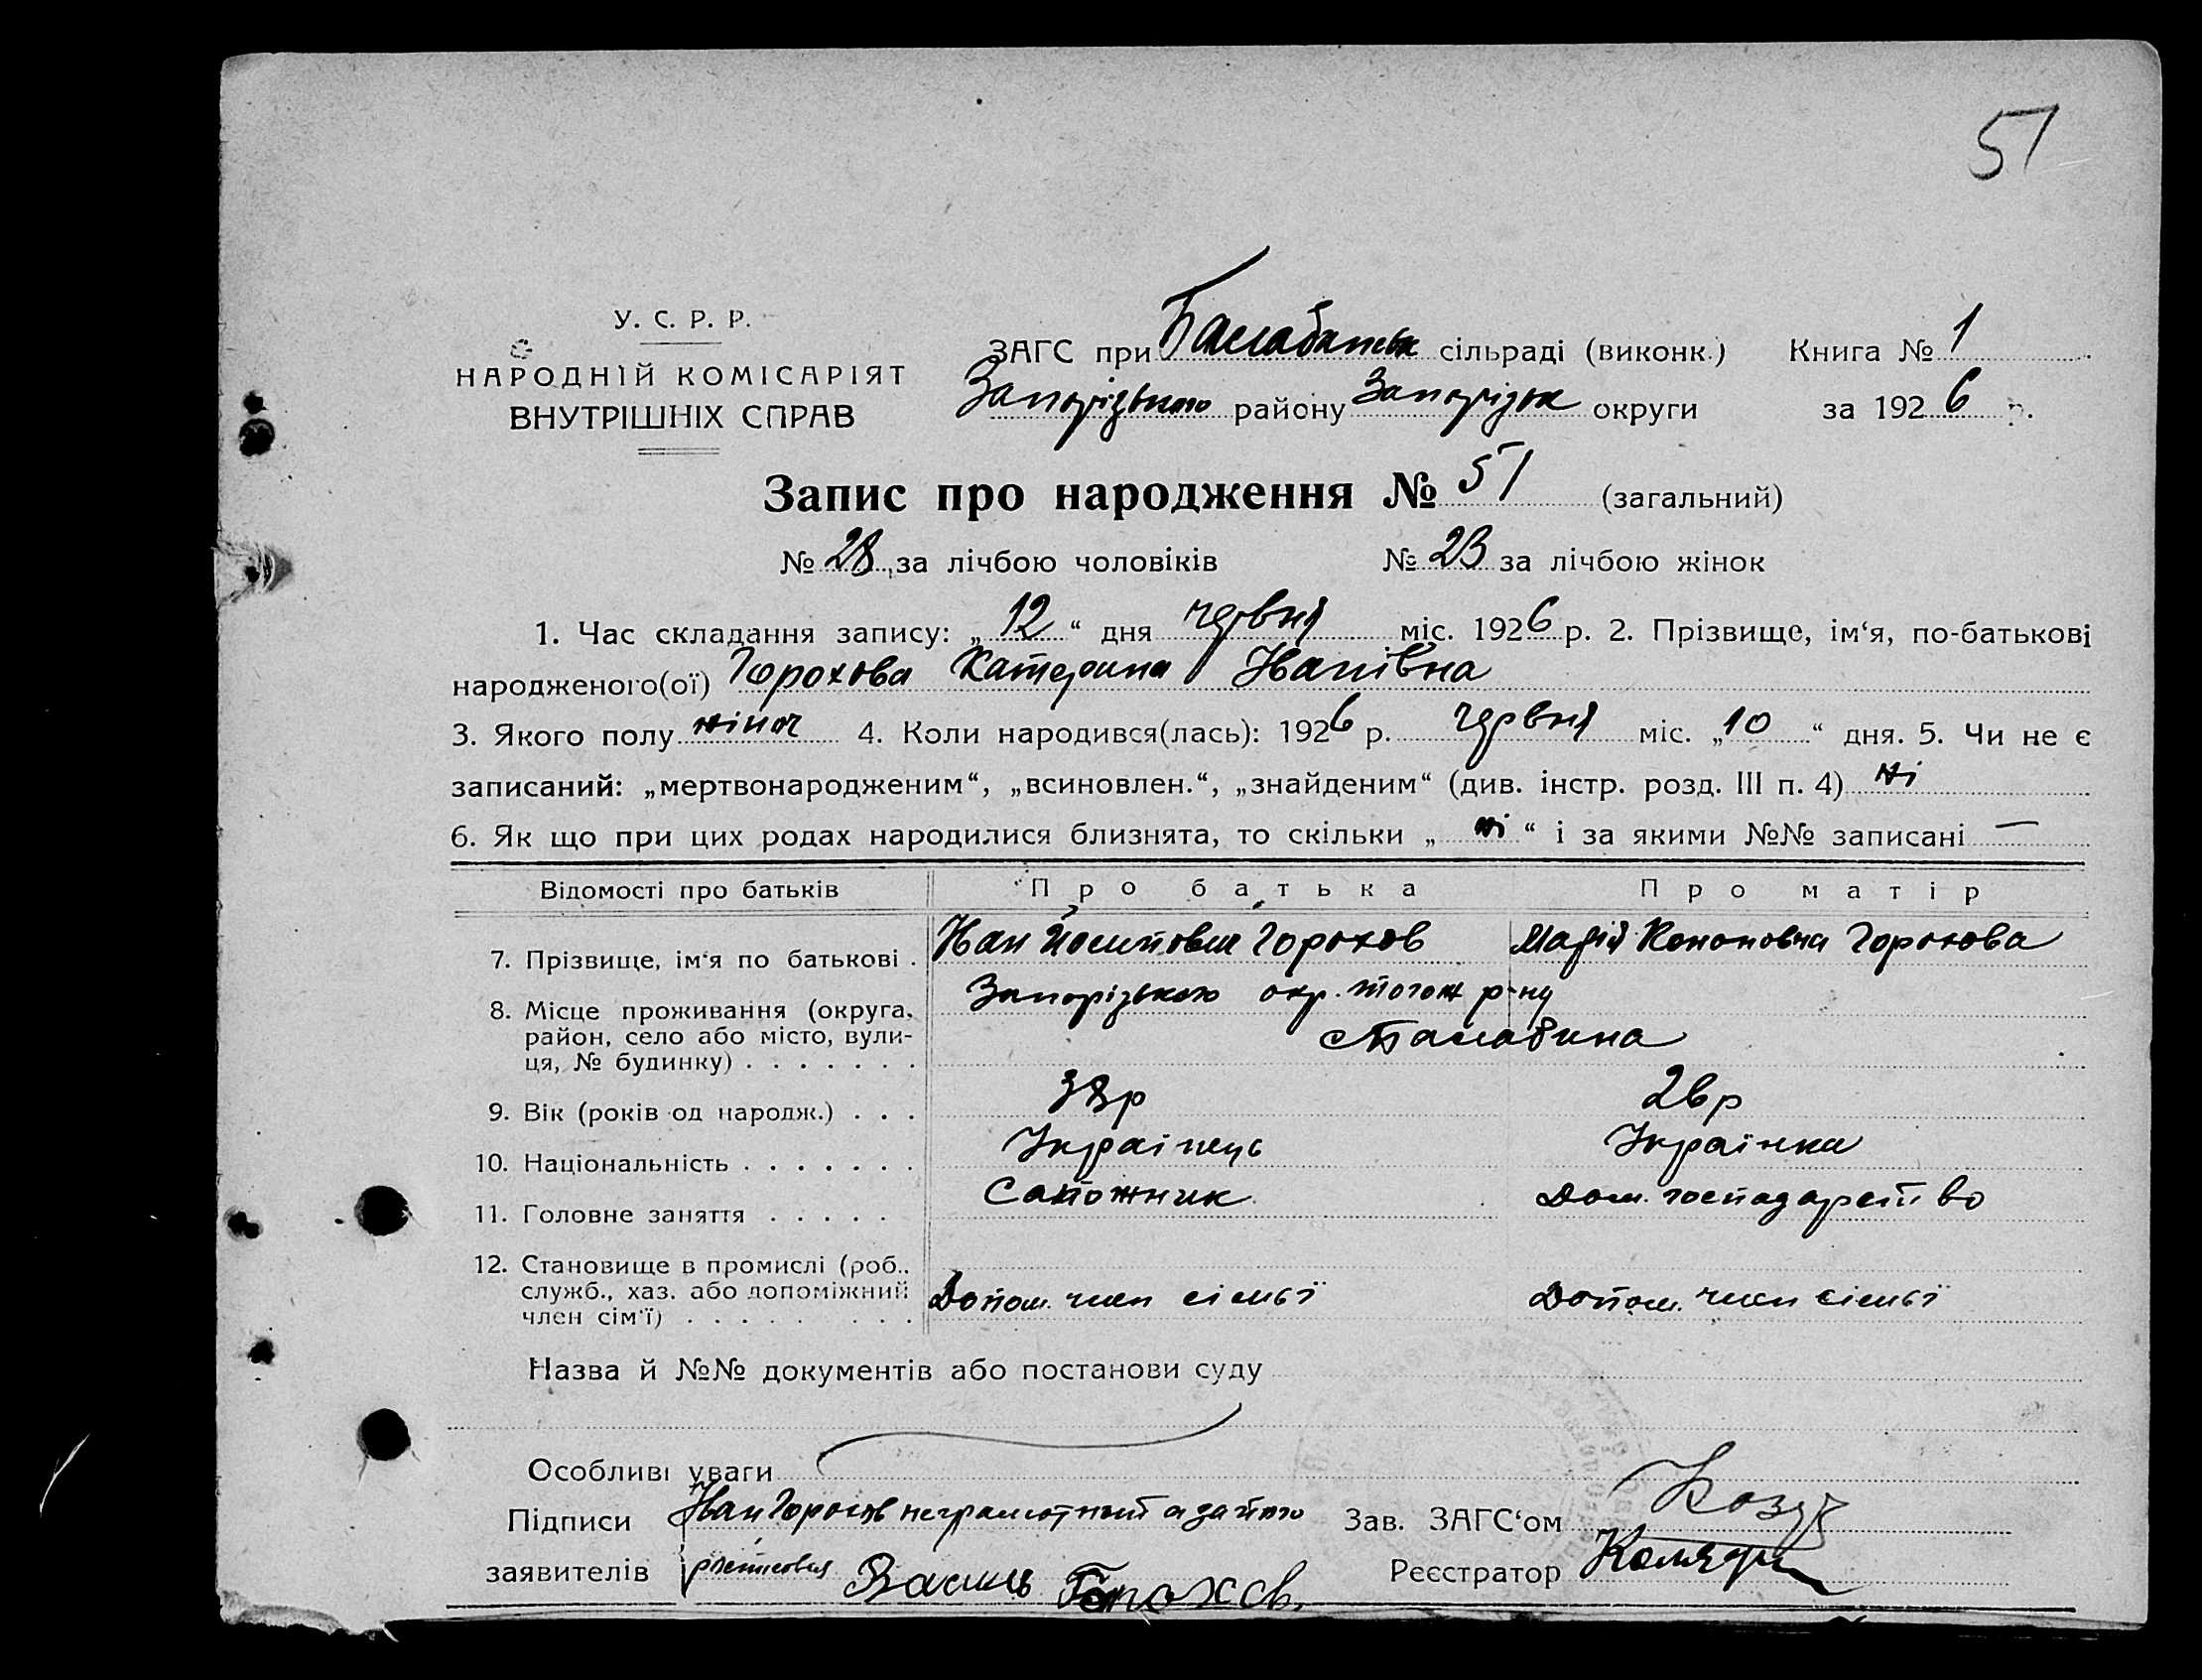 51
У. С. Р. Р.
НАРОДНІЙ КОМІСАРІЯТ
ВНУТРІШНІХ СПРАВ
ЗАГС при Балабинськ сільраді (виконк.) Книга № 1
Запорізького району Запорізьк округи за 1926 р.
Запис про народження № 51 (загальний)
№ 28 за лічбою чоловіків № 23 за лічбою жінок
1. Час складання запису: „12“ дня червня міс. 1926 р. 2. Прізвище, ім‘я, по-батькові
народженого(ої) Горохова Катерина Иванівна
3. Якого полу жіноч 4. Коли народився(лась): 1926 р. червня міс. „10“ дня. 5. Чи не є
записаний: „мертвонародженим“, „всиновлен.“, „знайденим“ (див. інстр. розд. III п. 4) ні
6. Як що при цих родах народилися близнята, то скільки „ні“ і за якими №№ записані —
Відомості про батьків Про батька Про матір
7. Прізвище, ім‘я по батькові . Иван Йосипович Горохов Марія Кононовна Горохова
8. Місце проживання (округа, район, село або місто, вулиця, № будинку) . . . . . . . Запорізького окр. тогож р-ну
с Балабина
9. Вік (років од народж.) . . . 38р 26р
10. Національність . . . . . . . Українець Українка
11. Головне заняття . . . . . Сапожник Дом. господарство
12. Становище в промислі (роб., служб., хаз. або допоміжний член сім‘ї) . . . . . . . . Допом. член сімьї Допом. член сімьї
Назва й №№ документів або постанови суду
Особливі уваги
Підписи Иван Горохов неграмотний а за нього Зав. ЗАГС‘ом
заявителів Василь Горохов. Реєстратор